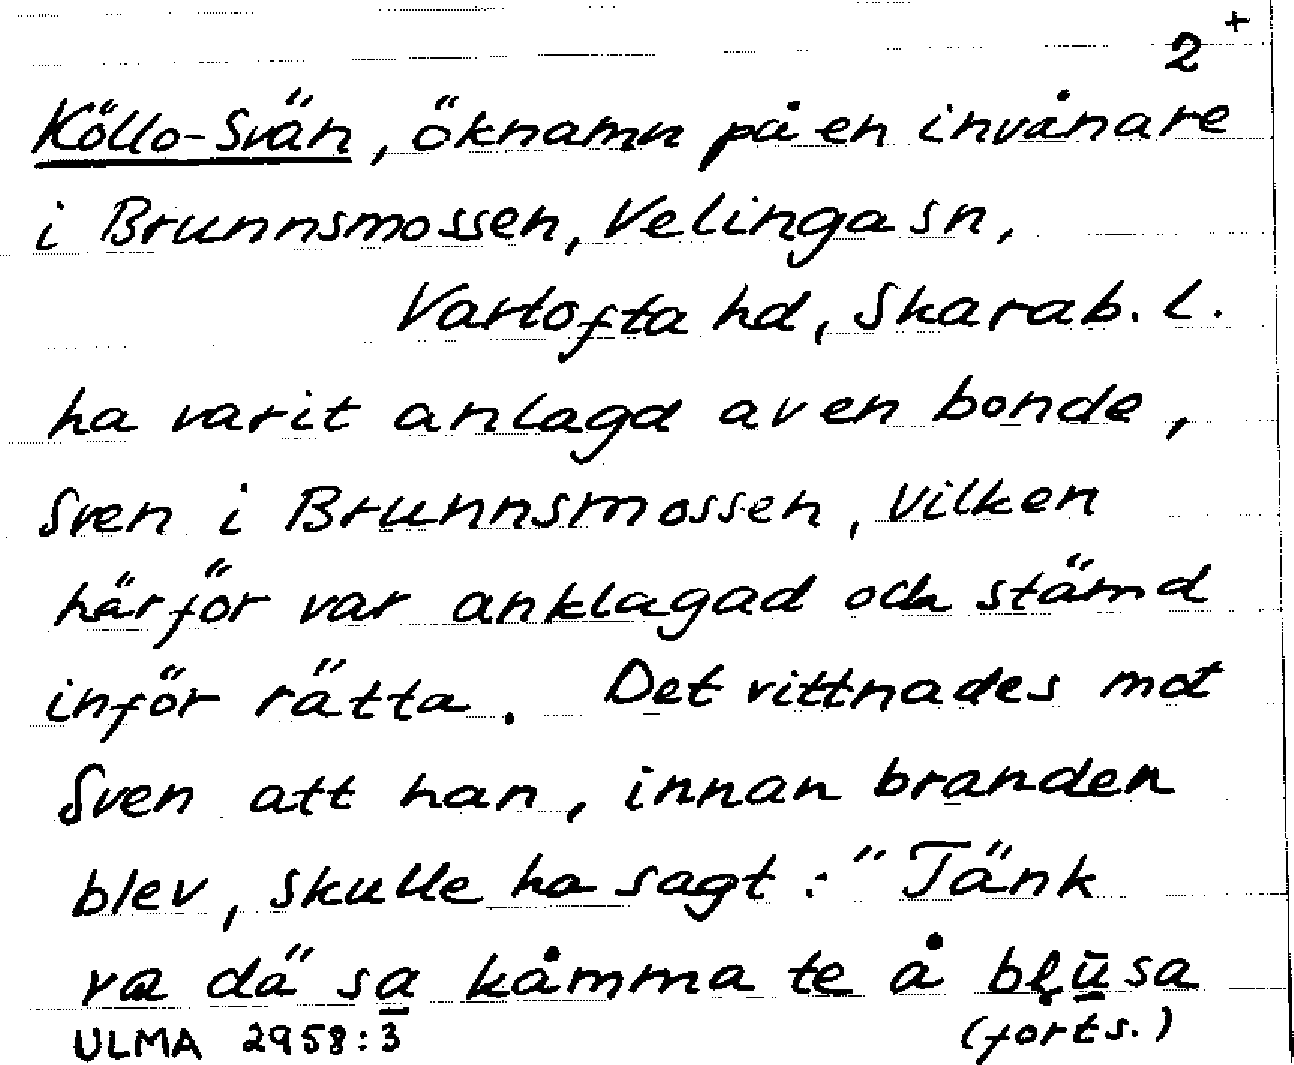 2 +
Köllo-Svän, öknamn på en invånare
i Brunnsmossen, Velinga sn,
Vartofta hd, Skarab. l.
ha varit anlagd av en bonde,
Sven i Brunnsmossen, vilken
härför var anklagad och stämd
inför rätta. Det vittnades mot
Sven att han, innan branden
blev, skulle ha sagt: "Tänk
va dä sa kåmma te å blusa
ULMA 2958:3 (forts.)